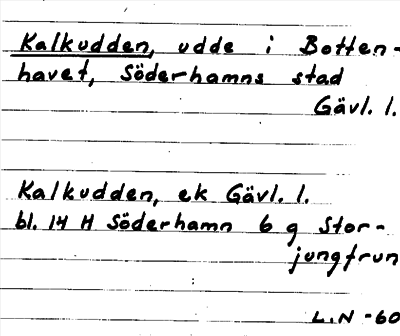 Kalkudden, udde i Botten-
havet, Söderhamns stad
Gävl. l.
Kalkudden, ek Gävl. l.
bl. 14 H Söderhamn 6 g Stor-
jungfrun
L.N -60